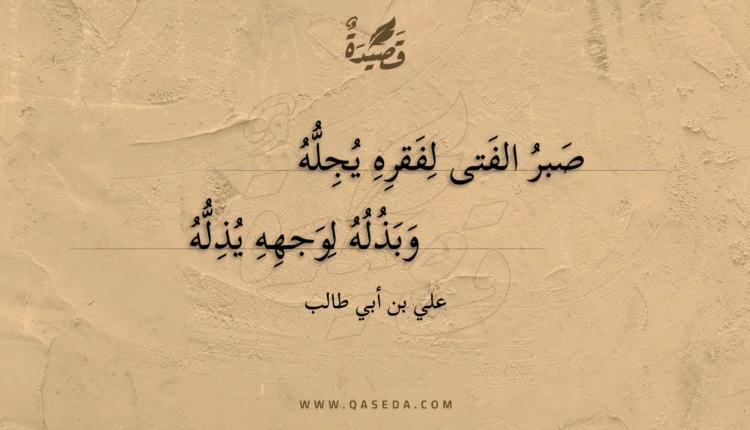 قَصِيدَةٌ
صَبرُ الفَتى لِفَقرِهِ يُجِلُّهُ
وَبَذُلُهُ لِوَجهِهِ يُذِلُّهُ
علي بن أبي طالب
WWW.QASEDA.COM